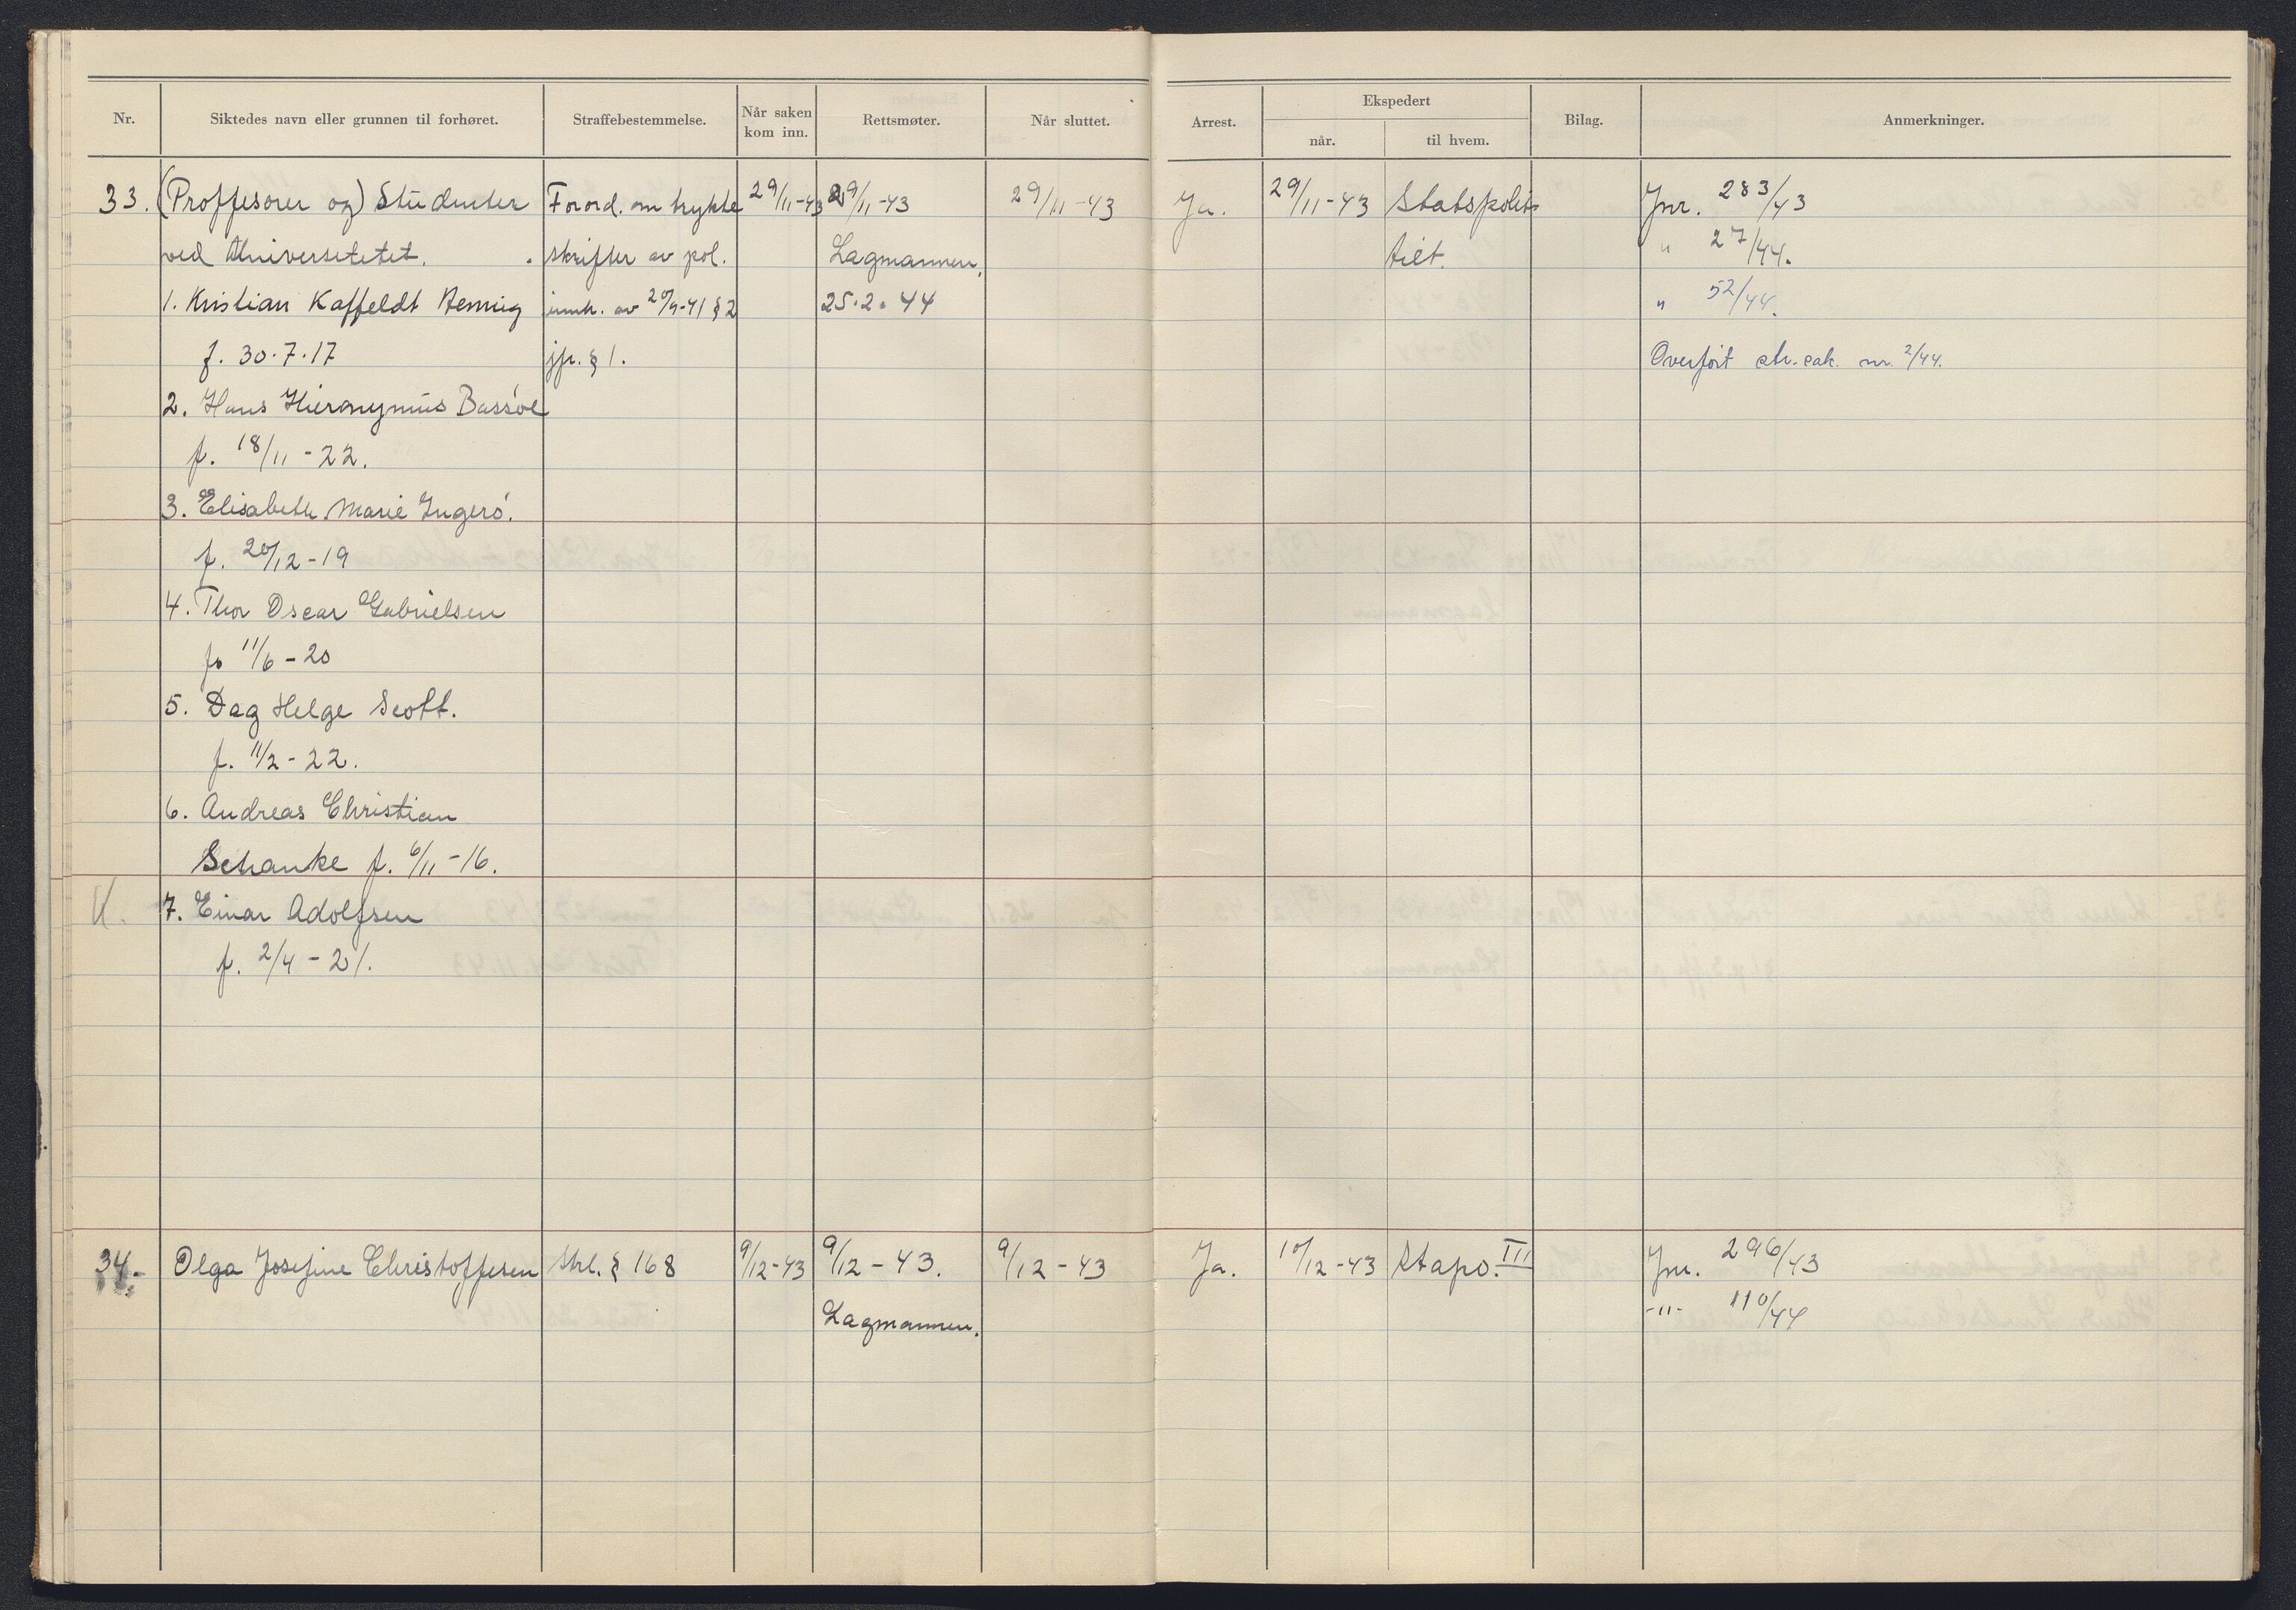 Nr. Siktedes navn eller grunnen til forhøret. Straffebestemmelse. Når saken kom inn. Rettsmøter. Når sluttet. Arrest. Ekspedert når. til hvem. Bilag. Anmerkninger.
33. (Proffesorer og) Studenter Forord. om trykte 29/11-43 29/11-43 29/11-43 Ja. 29/11-43 Statspoli- Jnr. 283/43
ved Universitetet. skrifter av pol. Lagmannen. tiet. " 27/44.
1. Kristian Kaffeldt Hennig innh. av 20/9-41 § 2 25.2.44 " 52/44.
f. 30.7.17 jfr. § 1. Overført str.sak. nr. 2/44.
2. Hans Hieronymus Bassøe
f. 18/11-22.
3. Elisabeth Marie Ingerø.
f. 20/12-19
4. Thor Oscar Gabrielsen
f. 11/6-20
5. Dag Helge Scott.
f. 11/2-22.
6. Andreas Christian
Schanke f. 6/11-16.
7. Einar Adolfsen
f. 2/4-21.
34. Olga Josefine Christoffersen Strl. § 168 9/12-43 9/12-43. 9/12-43 Ja. 10/12-43 Stapo. III Jnr. 296/43
Lagmannen. -"- 110/44